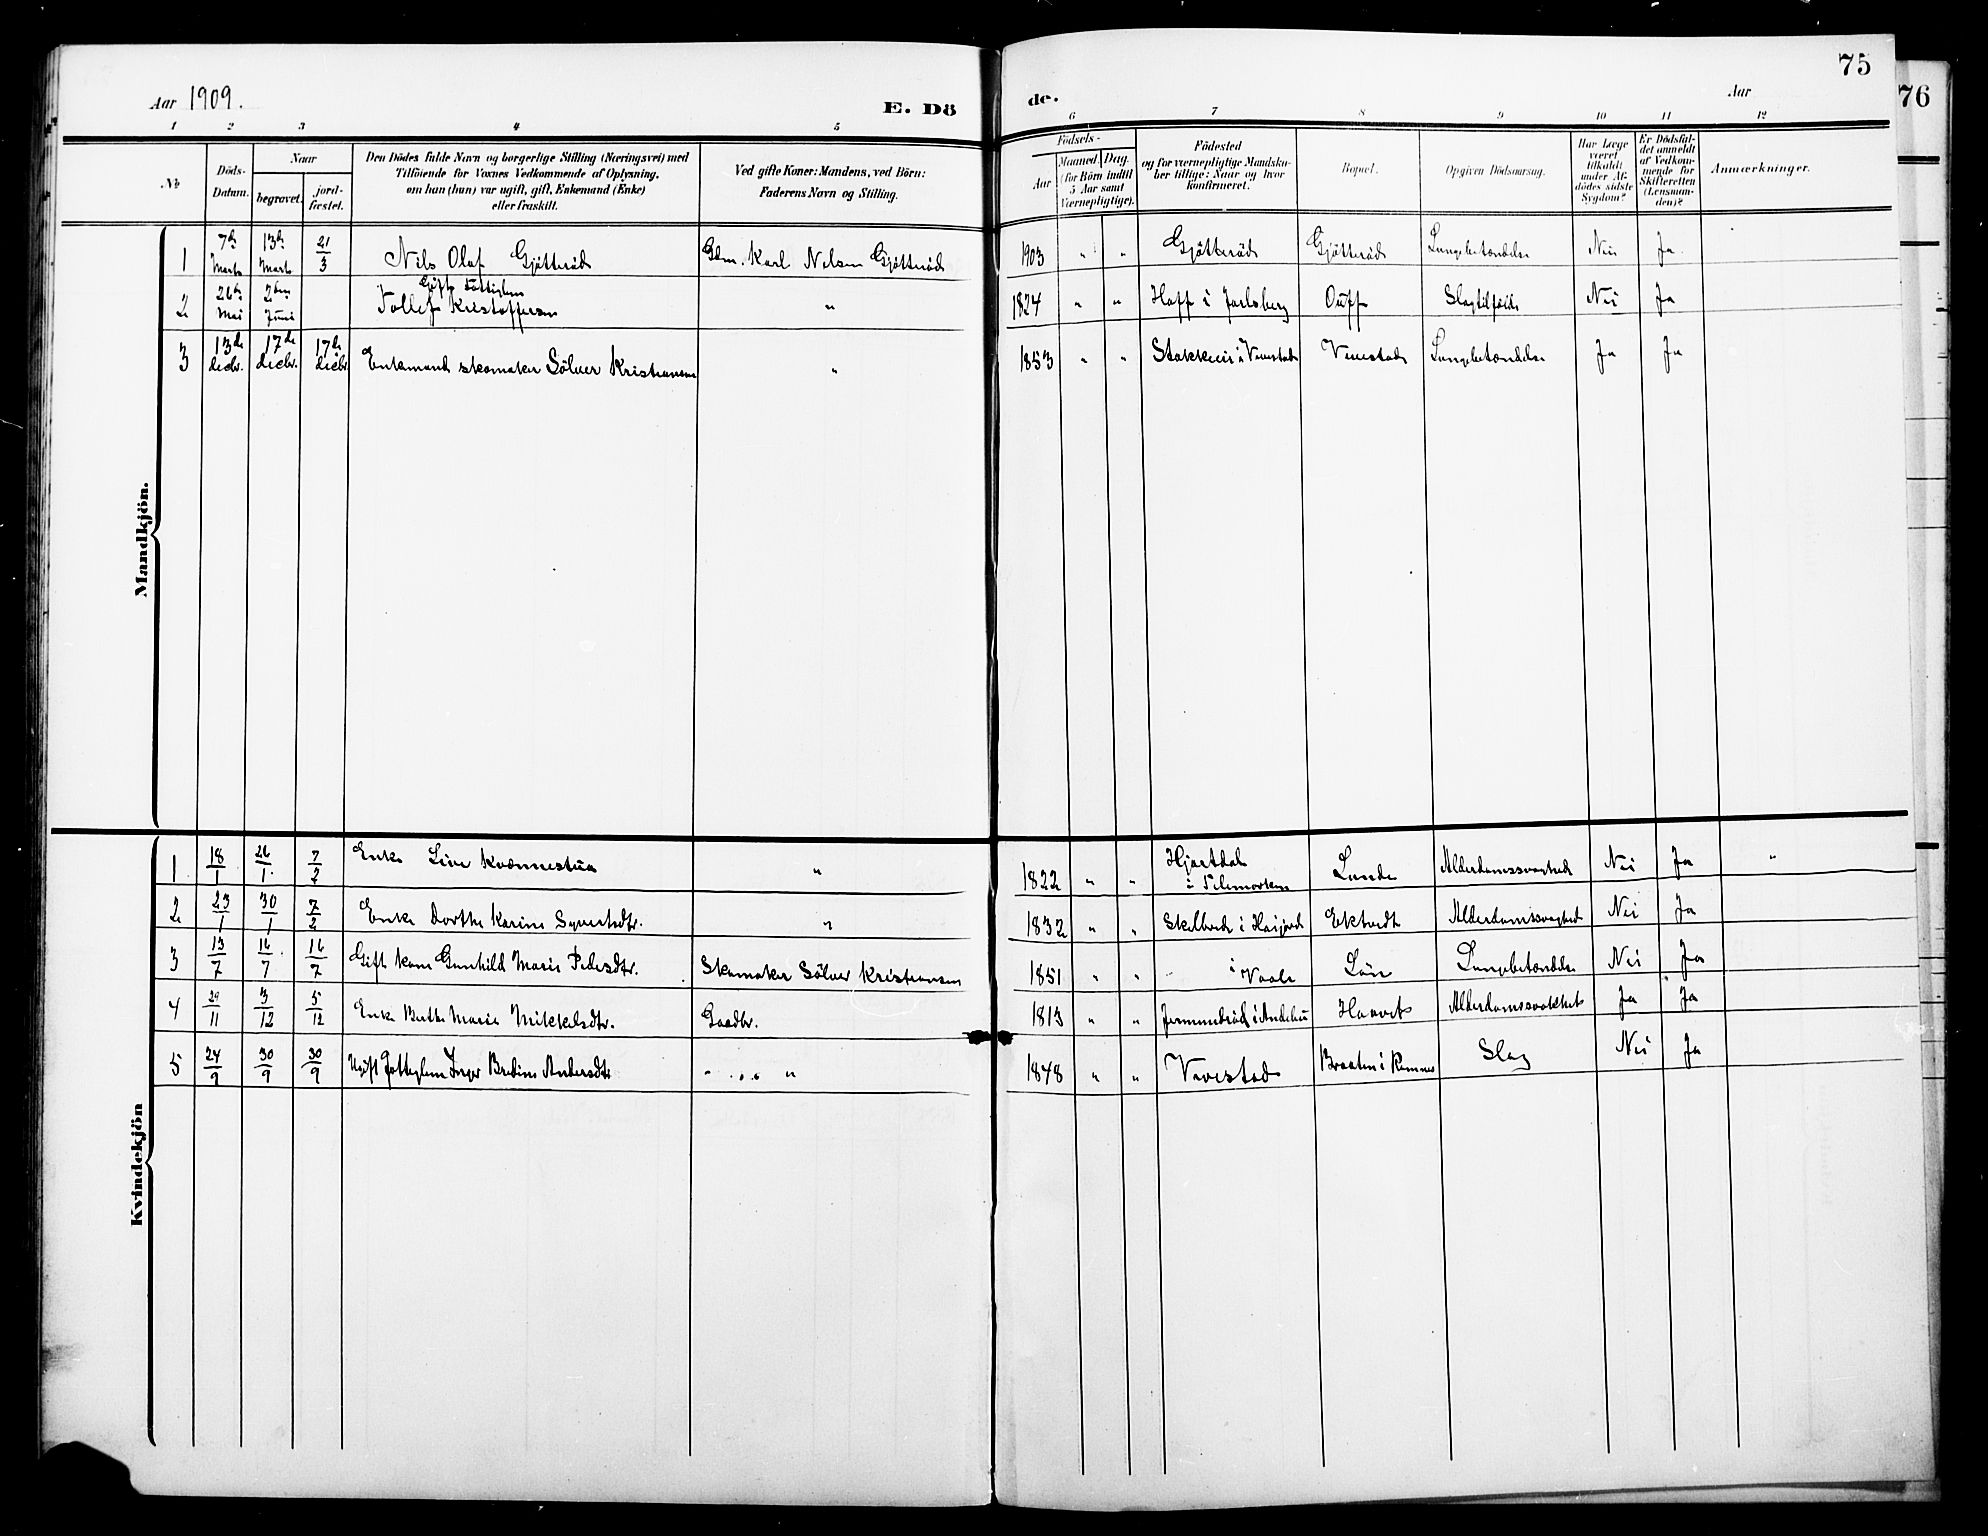 Aar 1909.
E. Dö
de.
Aar
75
76
1 2 3 4 5 6 7 8 9 10 11 12
№
Döds-
Datum.
Naar
begravet.
jord-
fæstet.
Den Dödes fulde Navn og borgerlige Stilling (Næringsvei) med
Tilföiende for Voxnes Vedkommende af Oplysning,
om han (hun) var ugift, gift, Enkemand (Enke)
eller fraskilt.
Ved gifte Koner: Mandens, ved Börn:
Faderens Navn og Stilling.
Födsels-
Aar
Maaned. Dag.
(for Börn indtil
5 Aar samt
Værnepligtige).
Födested
og for værnepligtige Mandska-
ber tillige: Naar og hvor
konfirmeret.
Bopæl.
Opgiven Dödsaarsag.
Har Læge
været
tilkaldt
under Af-
dödes sidste
Sygdom?
Er Dödsfal-
det anmeldt
af Vedkom-
mende for
Skifteretten
(Lensman-
den)?
Anmærkninger.
Mandkjön.
1 7de Marts 13de Marts 21/3 Nils Olaf Gjötteröd Gdm. Karl Nilsen Gjötteröd 1903 " " Gjötteröd Gjötteröd Lungebetændelse Nei Ja
Gift Fattiglem
2 26de Mai 2den Juni Tollef Kristoffersen " 1824 " " Hoff i Jarlsberg Ouff Slagtilfælde Nei Ja
3 13de decbr. 17de decbr. 17de decbr. Enkemand skomaker Sölver Kristiansen " 1853 " " i Vivestad Vivestad Lungebetændelse Ja Ja
Kvindekjön
1 18/1 26/1 7/2 Enke Live Kvænnestua " 1822 " " Hjartdal i Telemarken Lunde Alderdomssvaghed Nei Ja "
2 23/1 30/1 7/2 Enke Dorthe Karine Syvertsdtr. " 1832 " " i Ektvedt Alderdomssvaghed Nei Ja
3 13/7 16/7 16/7 Gift kone Gunhild Marie Pedersdtr. Skomaker Sölver Kristiansen 1851 " " i Vaale Löie Lungebetændelse Nei Ja
4 29/11 3/12 5/12 Enke Berthe Marie Mikkelsdtr. Gaadbr. 1813 " " i Andebu Alderdomssvakhet Ja Ja
5 24/9 30/9 30/9 Ugift fattiglem Inger Bredine Andersdtr " " 1848 " " Vivestad Braaten i Ramnes Slag Nei Ja